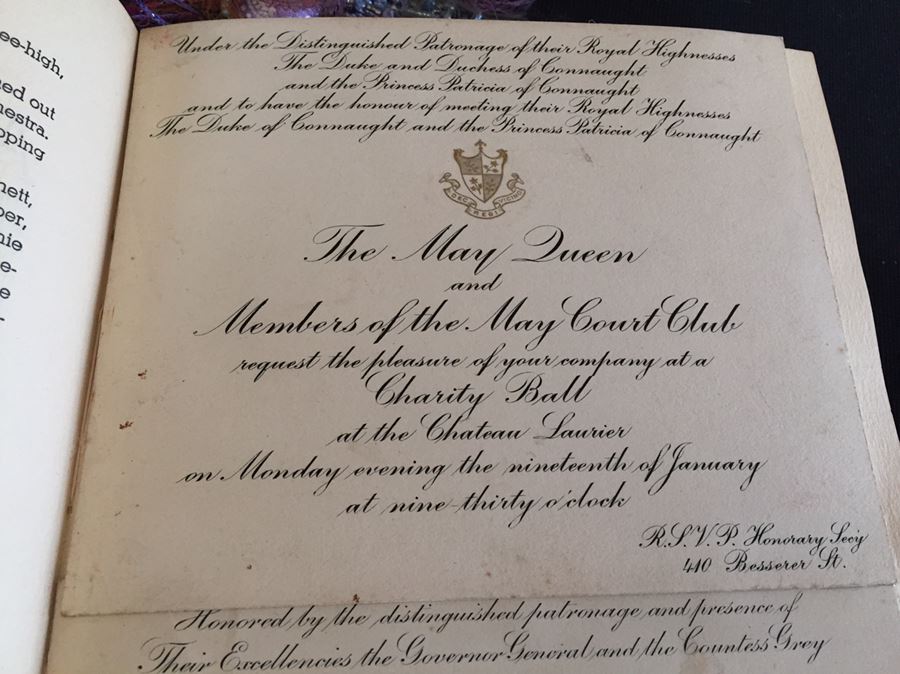 ee-high,
ed out
nestra.
pping
nett,
per,
nie
e-
e
-
Under the Distinguished Patronage of their Royal Highnesses
The Duke and Duchess of Connaught
and the Princess Patricia of Connaught
and to have the honour of meeting their Royal Highnesses
The Duke of Connaught and the Princess Patricia of Connaught
NEC REGI VICINO
The May Queen
and
Members of the May Court Club
request the pleasure of your company at a
Charity Ball
at the Chateau Laurier
on Monday evening the nineteenth of January
at nine-thirty o'clock
R.S.V.P. Honorary Sec'y
410 Besserer St.
Honored by the distinguished patronage and presence of
Their Excellencies the Governor General and the Countess Grey